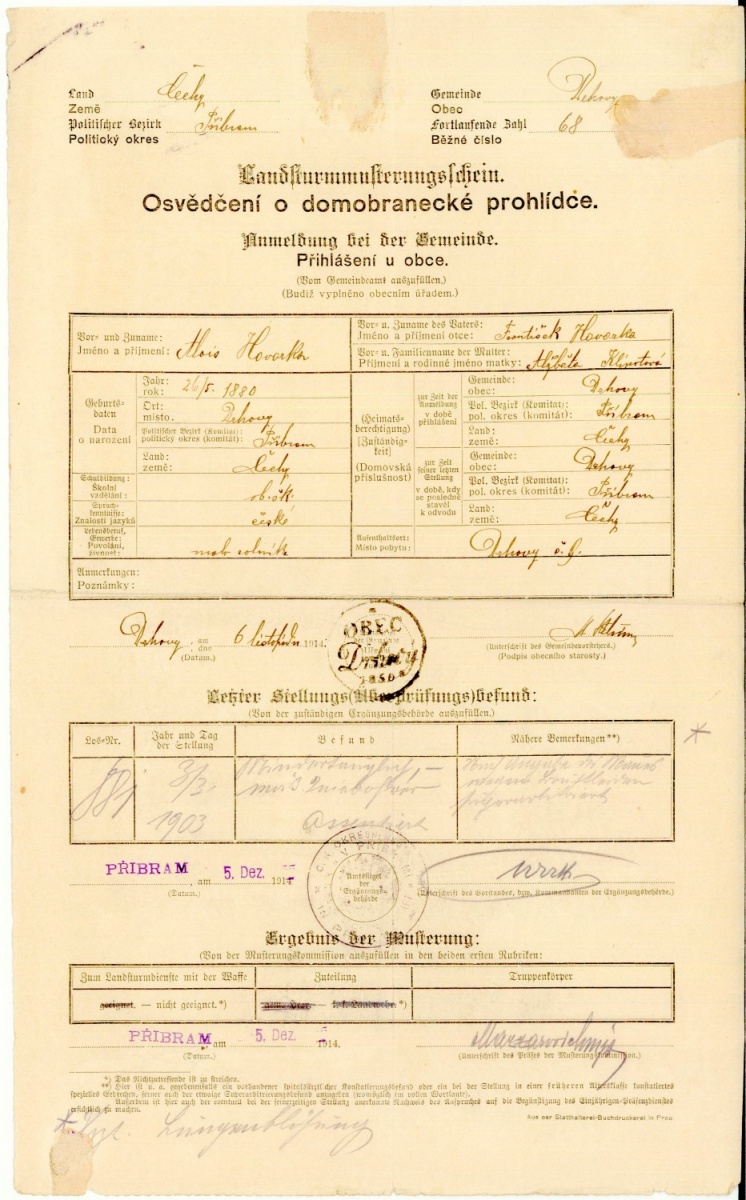 Land Čechy
Země
Politischer Bezirk Příbram
Politický okres
Gemeinde Drhovy
Obec
Fortlaufende Zahl 68
Běžné číslo
Landsturmmusterungsschein.
Osvědčení o domobranecké prohlídce.
Anmeldung bei der Gemeinde.
Přihlášení u obce.
(Vom Gemeindeamt auszufüllen.)
(Budiž vyplněno obecním úřadem.)
Vor- und Zuname:
Jméno a příjmení: Alois Hovorka
Vor- u. Zuname des Vaters:
Jméno a příjmení otce: František Hovorka
Vor- u. Familienname der Mutter:
Příjmení a rodinné jméno matky: Alžběta
Geburts-
daten
Data
o narození
Jahr:
rok: 26/5. 1880
Ort:
místo. Drhovy
Politischer Bezirk (Komitat):
politický okres (komitát): Příbram
Land:
země: Čechy
Schulbildung:
Školní
vzdělání: ob. šk
Sprach-
kenntnisse:
Znalosti jazyků české
Lebensberuf,
Gewerbe:
Povolání,
živnost: rolník
(Heimats-
berechtigung)
[Zuständig-
keit]
(Domovská
příslušnost)
zur Zeit der
Anmeldung
v době
přihlášení
Gemeinde:
obec: Drhovy
Pol. Bezirk (Komitat)
pol. okres (komitát): Příbram
Land:
země: Čechy
zur Zeit
seiner letzten
Stellung
v době, kdy
se posledně
stavěl
k odvodu
Gemeinde:
obec: Drhovy
Pol. Bezirk (Komitat)
pol. okres (komitát): Příbram
Land:
země: Čechy
Aufenthaltsort:
Místo pobytu: Drhovy č. 9.
Anmerkungen:
Poznámky:
Drhovy, am
dne 6 listopadu 1914
(Datum.)
OBEC
Drhovy
(Unterschrift des Gemeindevorstehers.)
(Podpis obecního starosty.)
Letzter Stellungs(Überprüfungs)befund:
(Von der zuständigen Ergänzungsbehörde auszufüllen.)
Los-Nr.
Jahr und Tag
der Stellung
Befund
Nähere Bemerkungen**)
3/3.
1903
Mindertauglich,
Assentiert
PŘIBRAM, am 5. Dez. 1914
(Datum.)
Amtssiegel
der
Ergänzungs-
behörde
(Unterschrift des Vorstandes, bzw. Kommandanten der Ergänzungsbehörde.)
Ergebnis der Musterung:
(Von der Musterungskommission auszufüllen in den beiden ersten Rubriken:
Zum Landsturmdienste mit der Waffe
Zuteilung
Truppenkörper
geeignet. — nicht geeignet.*)
gem. Heer. — k.k. Landwehr.*)
PŘIBRAM, am 5. Dez. 1914.
(Datum.)
(Unterschrift des Präses der Musterungskommission.)
*) Das Nichtzutreffende ist zu streichen.
**) Hier ist u. a. gegebenenfalls ein vorhandener spitalsärztlicher Konstatierungsbefund oder ein bei der Stellung in einer früheren Altersklasse konstatiertes
spezielles Gebrechen, ferner auch der etwaige Superarbitrierungsbefund anzugeben (womöglich im vollen Wortlaute).
Außerdem ist hier auch der eventuell bei der seinerzeitigen Stellung anerkannte Nachweis des Anspruches auf die Begünstigung des Einjährigen-Präsenzdienstes
ersichtlich zu machen.
Aus der Statthalterei-Buchdruckerei in Prag.